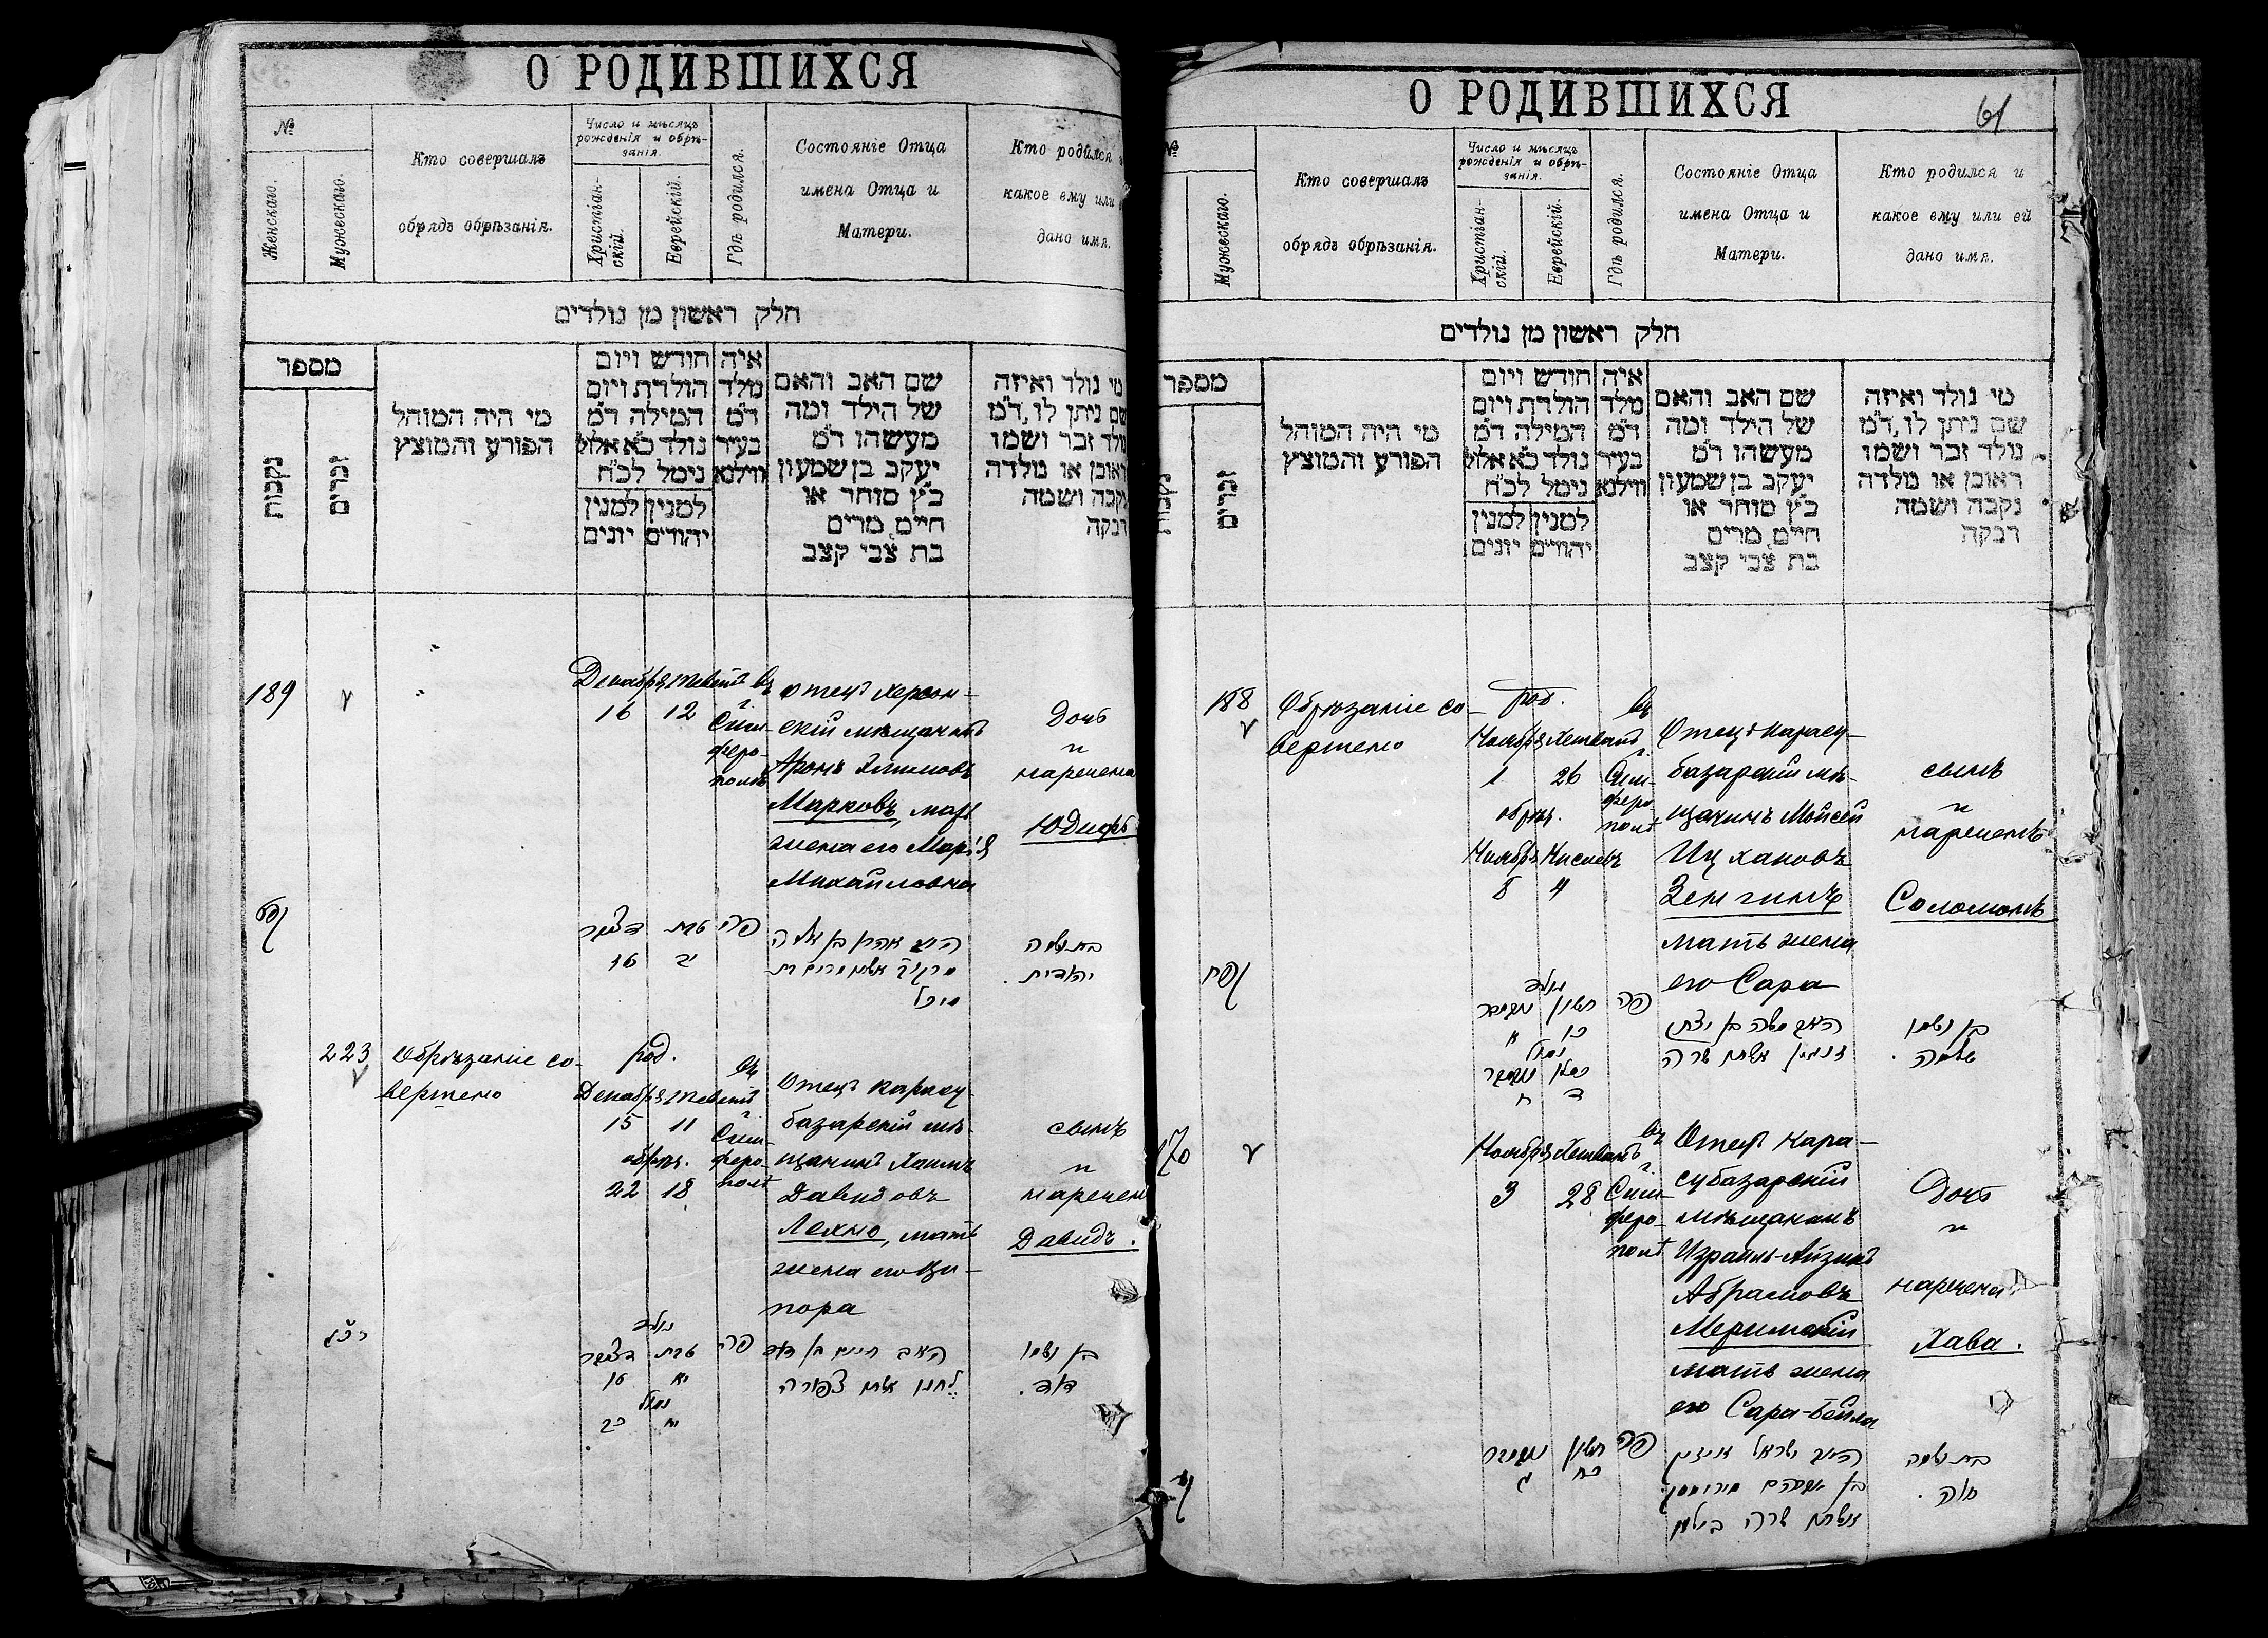 О РОДИВШИХСЯ
№
Женскаго.
Мужескаго.
Кто совершалъ
обрядъ обрѣзанія.
Число и мѣсяцъ
рожденія и обрѣ-
занія.
Христіан-
скій.
Еврейскій.
Гдѣ родился.
Состояніе Отца
имена Отца и
Матери.
Кто родился
какое ему или
дано имя.
חלק ראשון מן נולדים
מספר
נקבות
זכרים
מי היה המוהל
הפורע והמוצץ
חודש ויום
הולדת ויום
המילה ד״מ
נולד כ״א אלול
נימל לכ״ח
למנין למנין
יהודים יונים
איה
מלד
ד״מ
בעיר
ווילנא
שם האב והאם
של הילד ומה
מעשהו ד״מ
יעקב בן שמעון
כ״ץ סוחר או
חיים, מרים
בת צבי קצב
מי נולד ואיזה
שם ניתן לו, ד״מ
נולד זכר ושמו
ראובן או נולדה
נקבה ושמה
רבקה
189
Декабря Тевета въ
16 12
г. Сим-
феро-
полѣ
отецъ Херсон-
скій мѣщанинъ
Аронъ
Марковъ, мать
жена его Марія
Михайловна
Дочь
и
наречена
Юдифь
דצמבר טבת פה
16 יב
בת ושמה
יהודית.
223
Обрѣзаніе со-
вершено
род.
Декабря Тевета въ
15 11
обрѣз.
22 18
г. Сим-
феро-
полѣ
Отецъ Карасу-
базарскій мѣ-
щанинъ Хаимъ
Давидовъ
Лехно, мать
жена его Ци-
пора
сынъ
и
наречен
Давидъ.
רכג
נולד
דצמבר טבת פה
יא
נמול
כב יח
האב חיים בן דוד
לחנו אשתו צפורה
בן ושמו
דוד.
О РОДИВШИХСЯ
61
№
Мужескаго.
Кто совершалъ
обрядъ обрѣзанія.
Число и мѣсяцъ
рожденія и обрѣ-
занія.
Христіан-
скій.
Еврейскій.
Гдѣ родился.
Состояніе Отца
имена Отца и
Матери.
Кто родился и
какое ему или ей
дано имя.
חלק ראשון מן נולדים
מספר
נקבות
זכרים
מי היה המוהל
הפורע והמוצץ
חודש ויום
הולדת ויום
המילה ד״מ
נולד כ״א אלול
נימל לכ״ח
למנין למנין
יהודים יונים
איה
מלד
ד״מ
בעיר
ווילנא
שם האב והאם
של הילד ומה
מעשהו ד״מ
יעקב בן שמעון
כ״ץ סוחר או
חיים, מרים
בת צבי קצב
מי נולד ואיזה
שם ניתן לו, ד״מ
נולד זכר ושמו
ראובן או נולדה
נקבה ושמה
רבקה
188
Обрѣзаніе со-
вершено
род.
Ноября Хешвана въ
1 26
обрѣз.
Ноября
8 4
г. Сим-
феро-
полѣ
Отецъ Карасу-
базарскій мѣ-
щанинъ Мойсей
Ицхаковъ
Зенгинъ
мать жена
его Сара
сынъ
и
нареченъ
Соломонъ
קפח
נולד
חשון פה
כו א
נמול
כסלו
ד ח
האב משה בן יצחק
זנגין אשתו שרה
בן ושמו
שלמה.
170
Ноября Хешвана въ
3 28
г. Сим-
феро-
полѣ
Отецъ Кара-
субазарскій
мѣщанинъ
Израиль-Айзикъ
Абрамовъ
Меримскій
мать жена
его Сара-Бейла
Дочь
и
наречена
Хава.
חשון פה
כח ג
האב ישראל אייזיק
בן אברהם
אשתו שרה ביילא
בת ושמה
חוה.